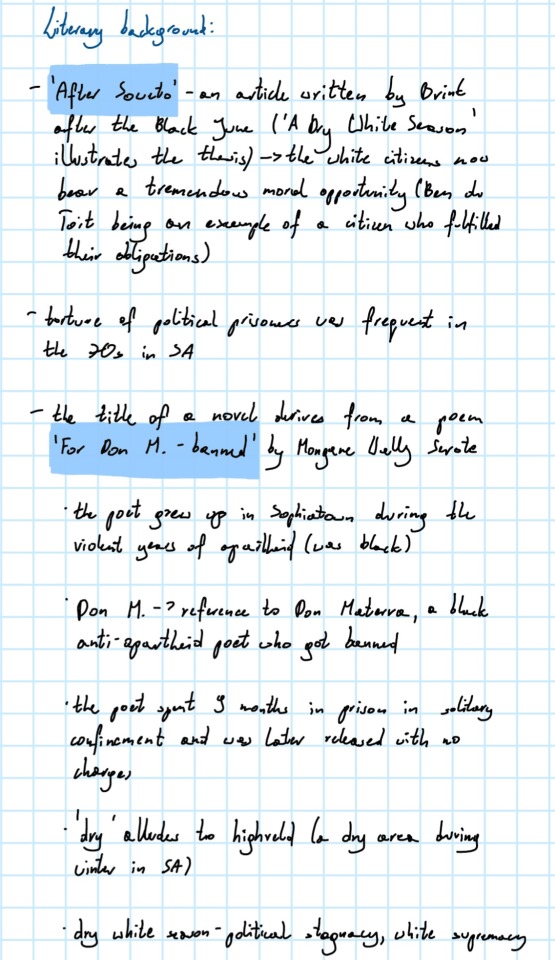 Literary background:
- 'After Soweto' - an article written by Brink
after the Black June ('A Dry White Season'
illustrates the thesis) -> the white citizens now
bear a tremendous moral opportunity (Ben du
Toit being an example of a citizen who fulfilled
their obligations)
- torture of political prisoners was frequent in
the 70s in SA
- the title of a novel derives from a poem
'For Don M. - banned' by Mongane Wally Serote
· the poet grew up in Sophiatown during the
violent years of apartheid (was black)
· Don M. -> reference to Don Materra, a black
anti-apartheid poet who got banned
· the poet spent 9 months in prison in solitary
confinement and was later released with no
charges
· 'dry' alludes to highveld (a dry area during
winter in SA)
· dry white season - political stagnacy, white supremacy